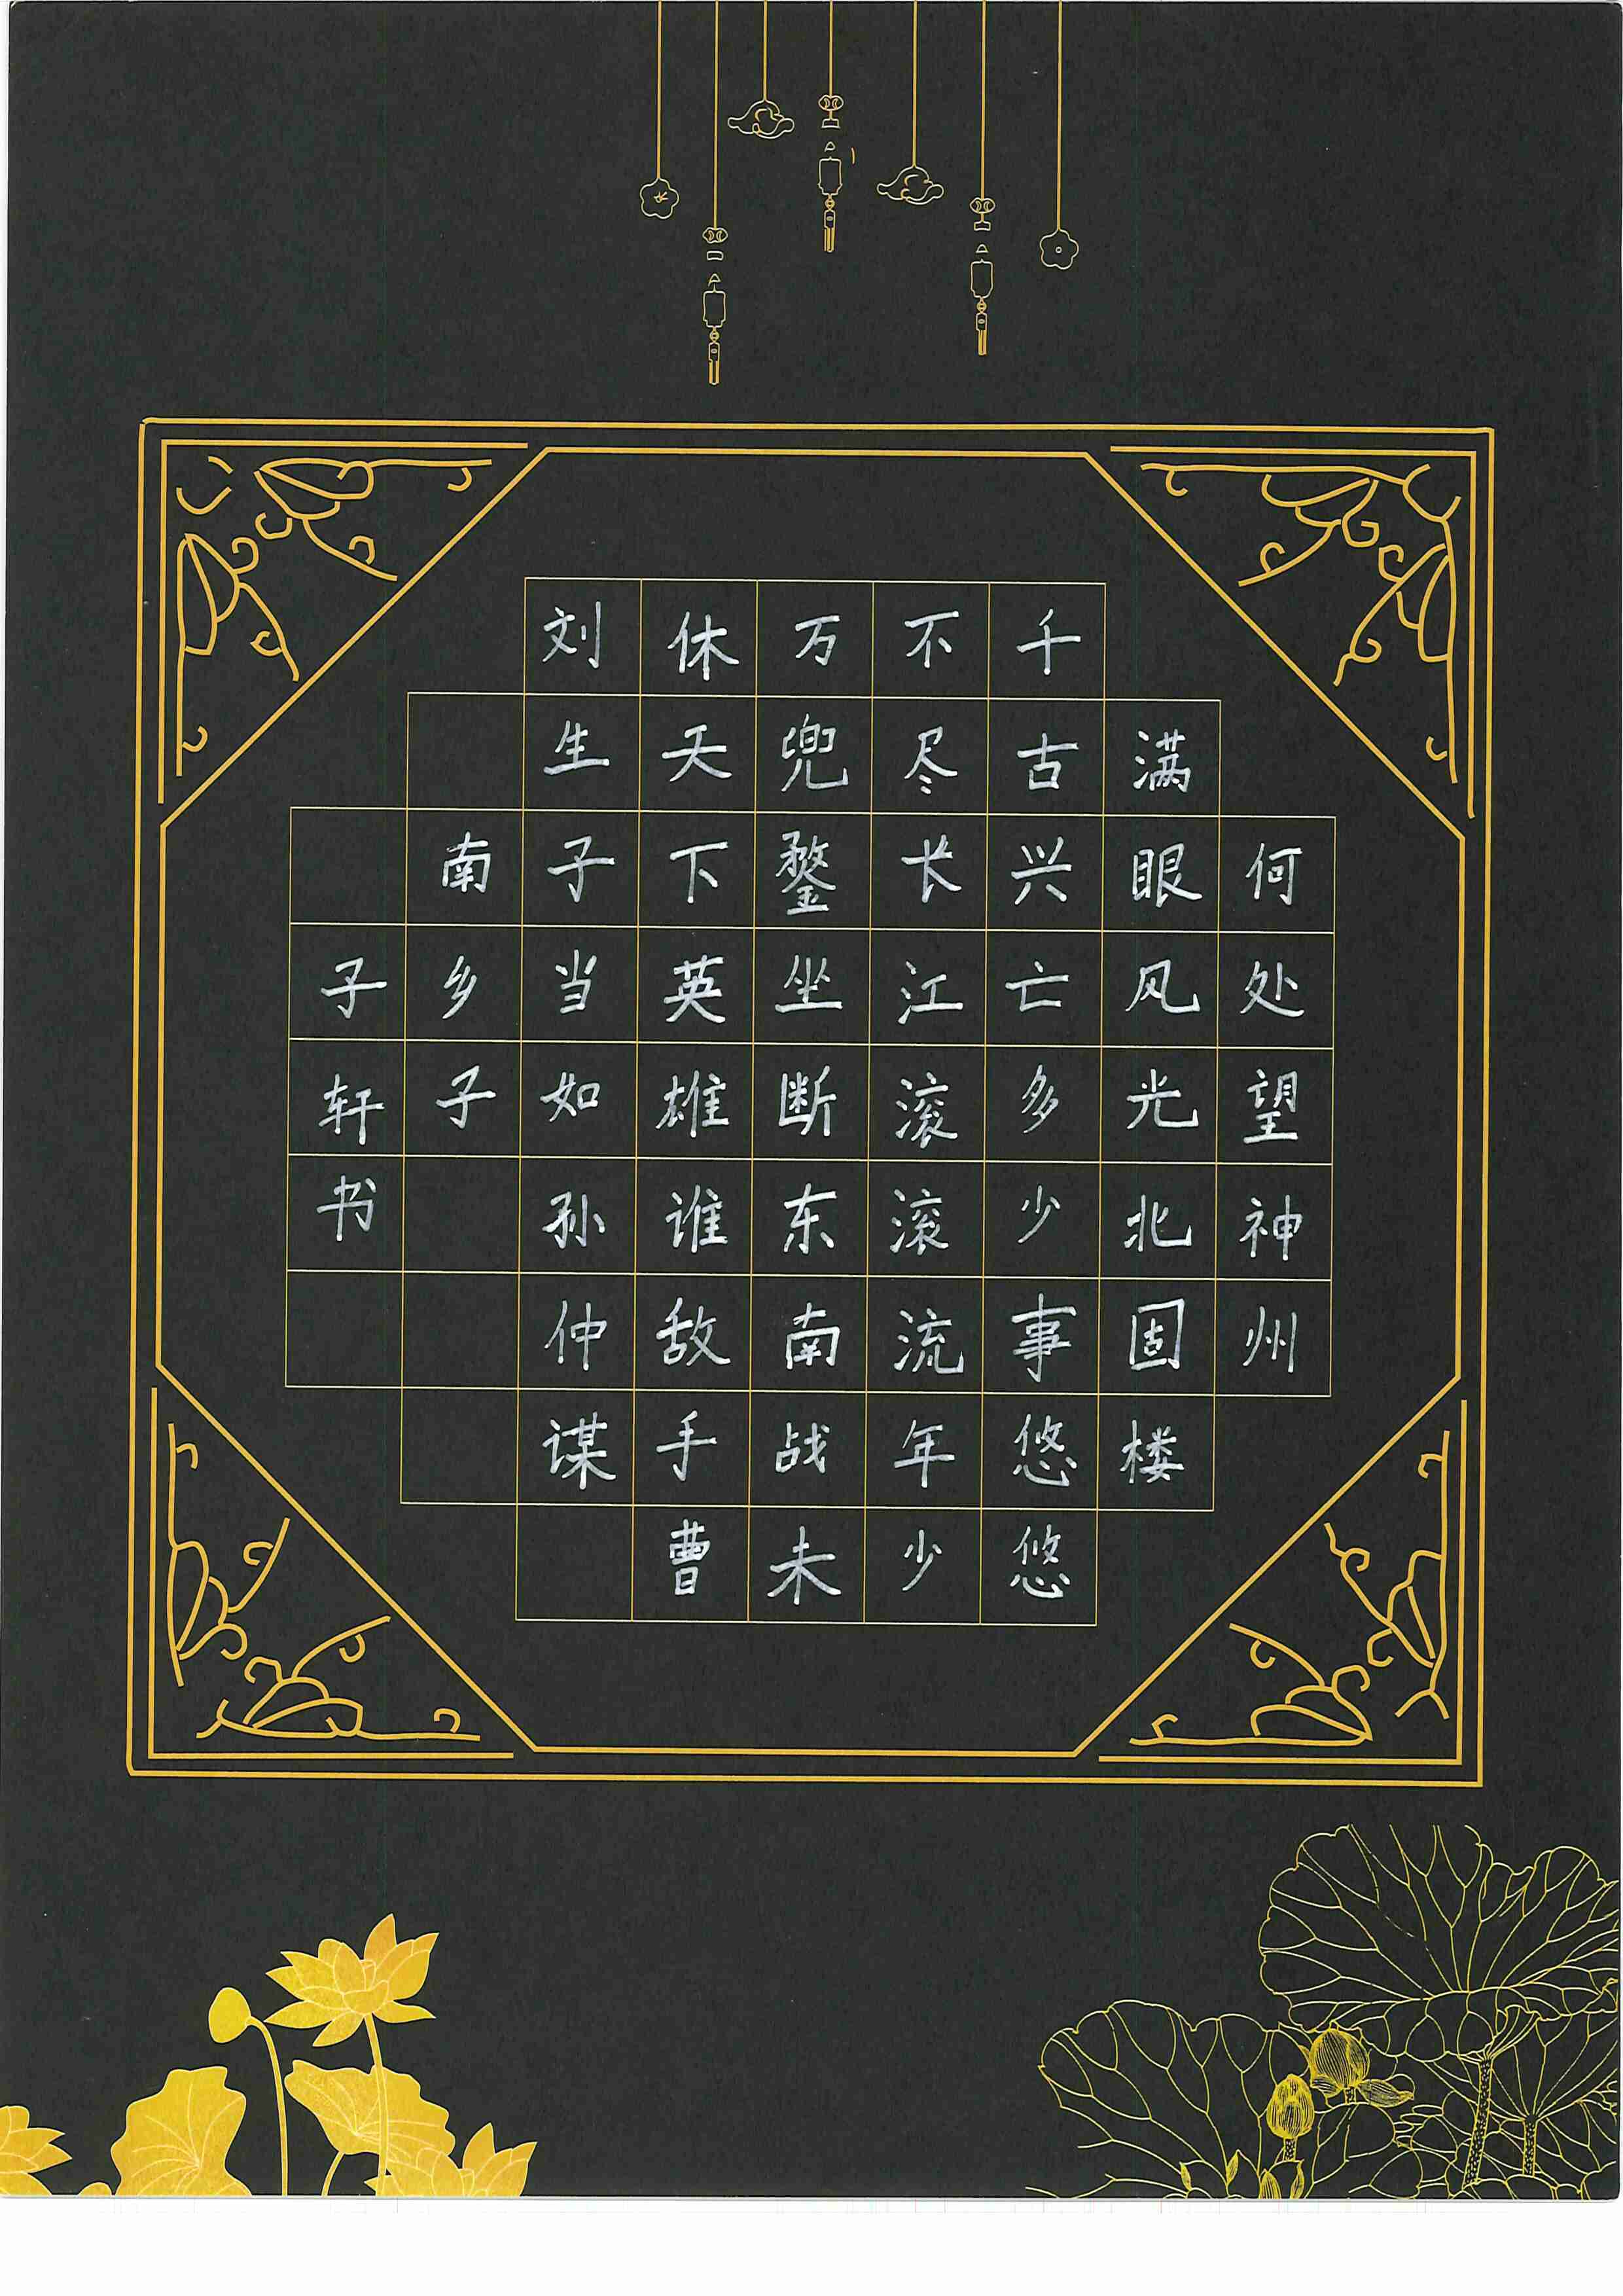 何处望神州
满眼风光北固楼
千古兴亡多少事悠悠
不尽长江滚滚流年少
万兜鍪坐断东南战未
休天下英雄谁敌手曹
刘生子当如孙仲谋
南乡子
子轩书